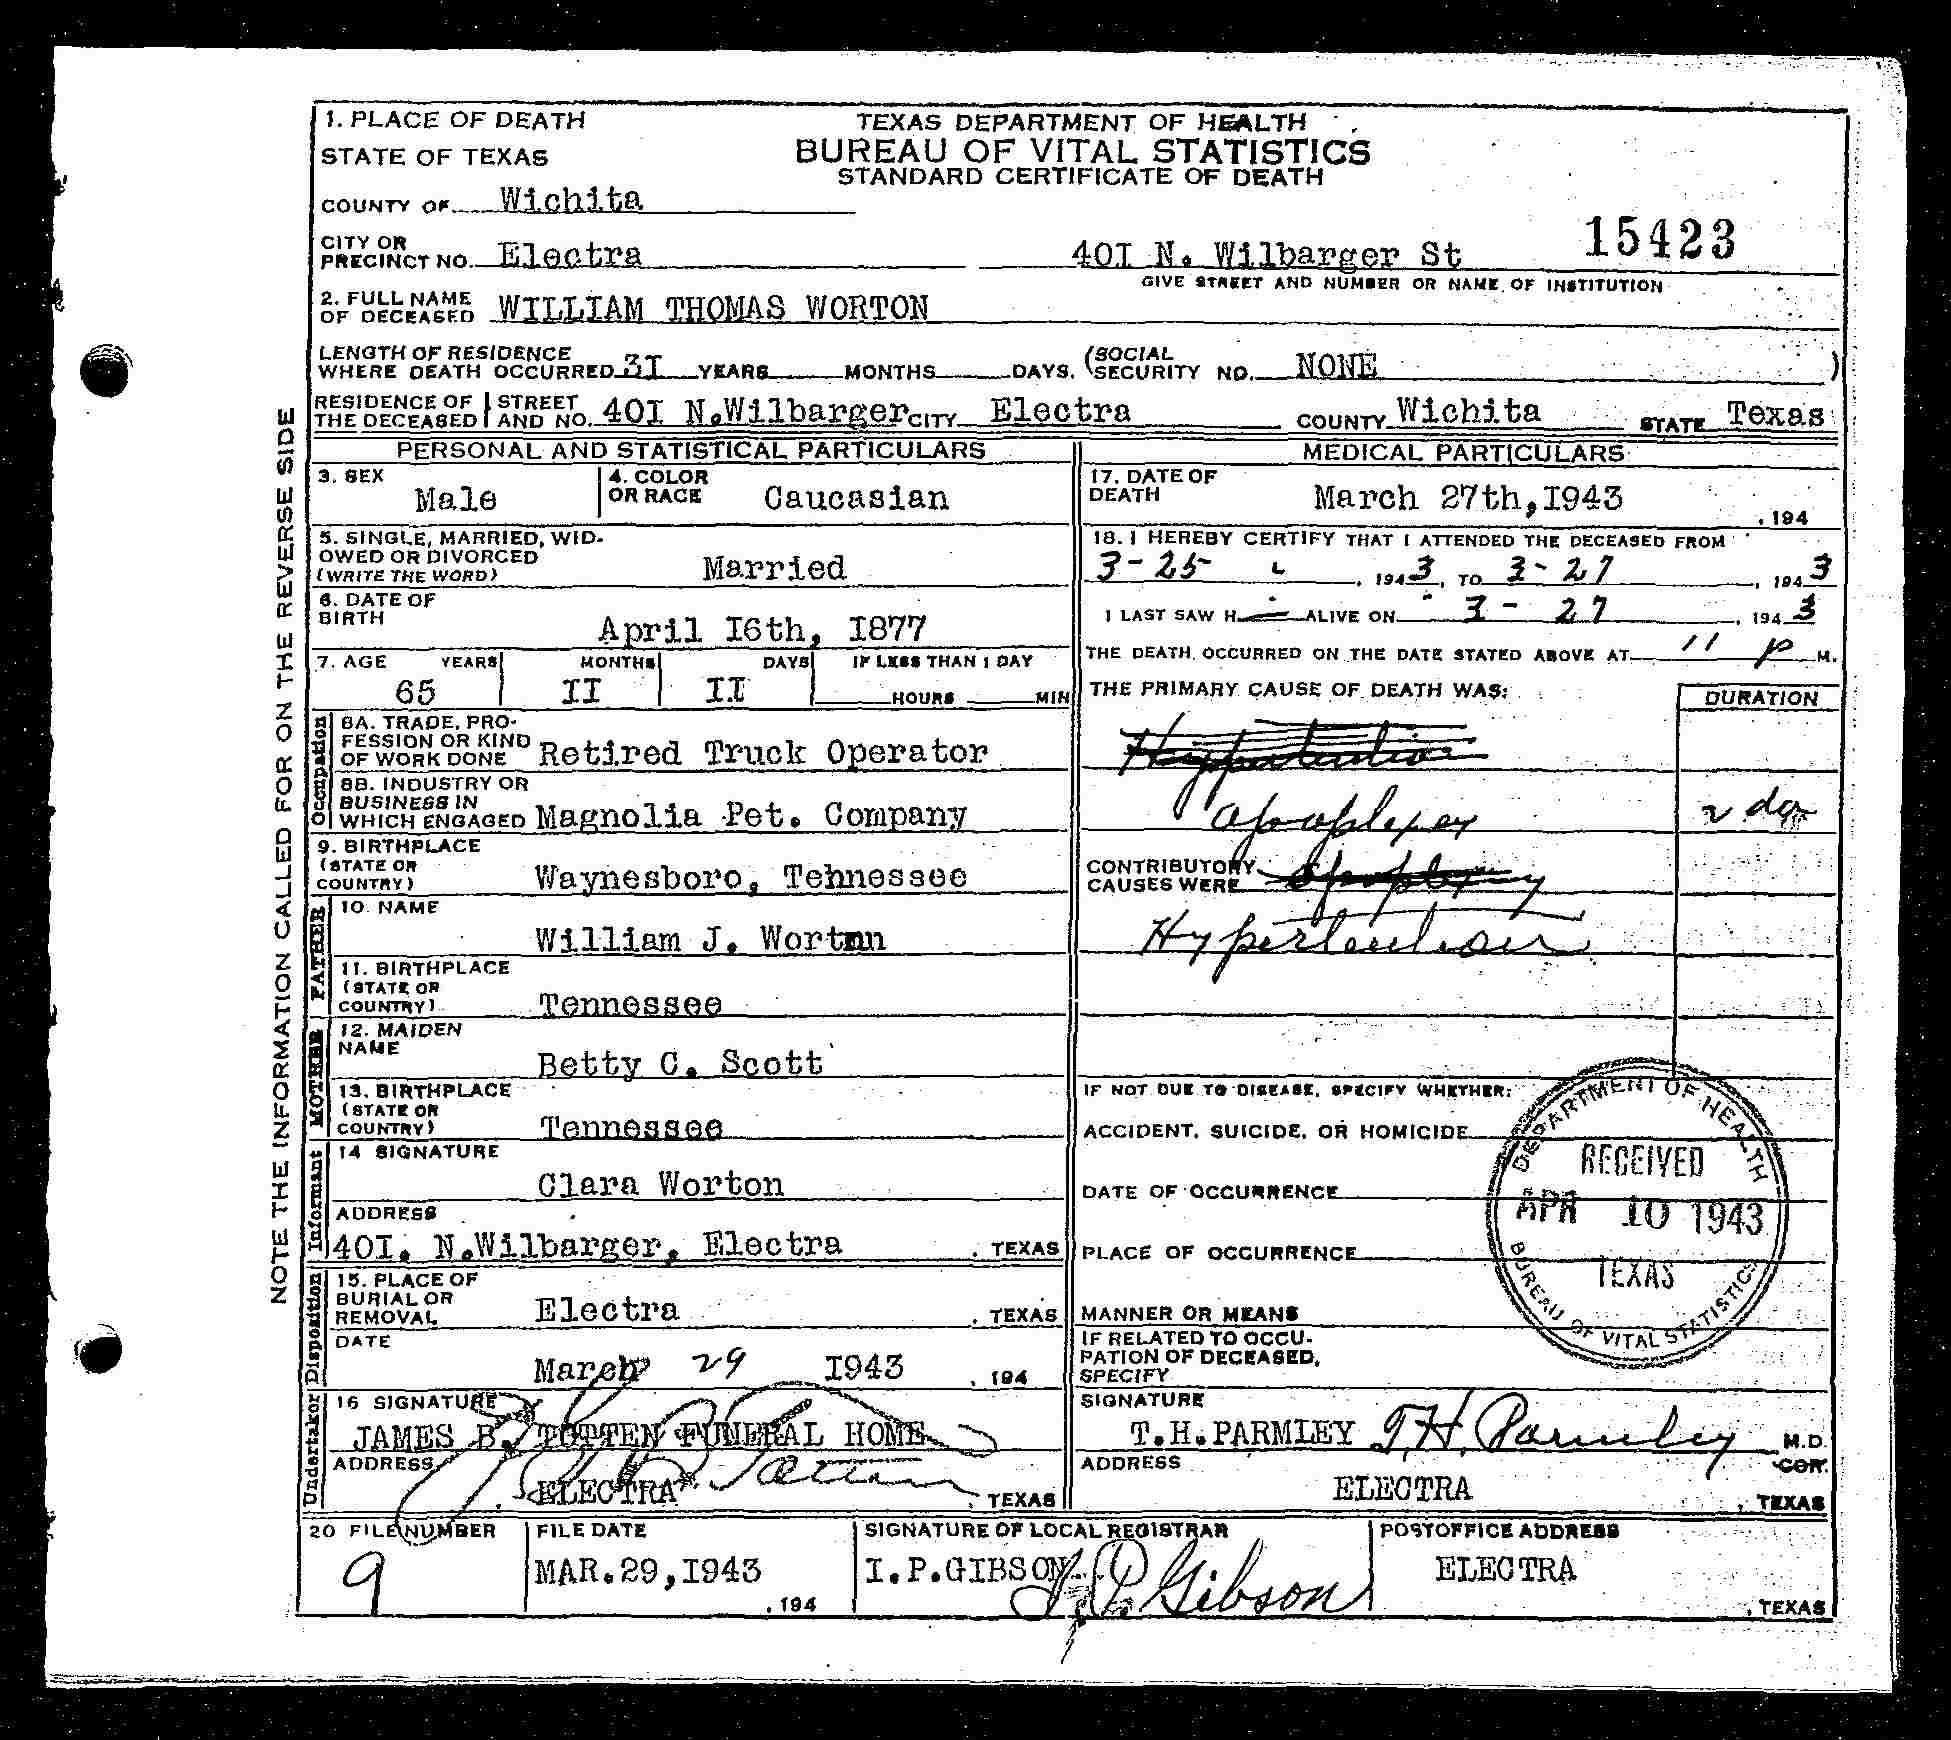 1. PLACE OF DEATH
STATE OF TEXAS
TEXAS DEPARTMENT OF HEALTH
BUREAU OF VITAL STATISTICS
STANDARD CERTIFICATE OF DEATH
COUNTY OF Wichita
15423
CITY OR PRECINCT NO. Electra 40I N. Wilbarger St
GIVE STREET AND NUMBER OR NAME OF INSTITUTION
2. FULL NAME OF DECEASED WILLIAM THOMAS WORTON
LENGTH OF RESIDENCE WHERE DEATH OCCURRED 3I YEARS MONTHS DAYS. (SOCIAL SECURITY NO. NONE )
RESIDENCE OF THE DECEASED STREET AND NO. 40I N.Wilbarger CITY Electra COUNTY Wichita STATE Texas
NOTE THE INFORMATION CALLED FOR ON THE REVERSE SIDE
PERSONAL AND STATISTICAL PARTICULARS
3. SEX Male
4. COLOR OR RACE Caucasian
5. SINGLE, MARRIED, WIDOWED OR DIVORCED (WRITE THE WORD) Married
6. DATE OF BIRTH April I6th, I877
7. AGE YEARS MONTHS DAYS IF LESS THAN 1 DAY
65 II II HOURS MIN
Occupation
8A. TRADE, PROFESSION OR KIND OF WORK DONE Retired Truck Operator
8B. INDUSTRY OR BUSINESS IN WHICH ENGAGED Magnolia Pet. Company
9. BIRTHPLACE (STATE OR COUNTRY) Waynesboro, Tehnessee
FATHER
10. NAME William J. Wortnn
11. BIRTHPLACE (STATE OR COUNTRY) Tennessee
MOTHER
12. MAIDEN NAME Betty C. Scott
13. BIRTHPLACE (STATE OR COUNTRY) Tennessee
Informant
14 SIGNATURE Clara Worton
ADDRESS
40I. N.Wilbarger, Electra , TEXAS
Disposition
15. PLACE OF BURIAL OR REMOVAL Electra , TEXAS
DATE March 29 I943 , 194
Undertaker
16 SIGNATURE
JAMES B. TOTTEN FUNERAL HOME
ADDRESS ELECTRA , TEXAS
MEDICAL PARTICULARS
17. DATE OF DEATH March 27th,I943 , 194
18. I HEREBY CERTIFY THAT I ATTENDED THE DECEASED FROM
3-25 , 1943, TO 3-27 , 1943
I LAST SAW H ALIVE ON 3-27 , 1943
THE DEATH OCCURRED ON THE DATE STATED ABOVE AT 11 p M.
THE PRIMARY CAUSE OF DEATH WAS: DURATION
Hypertension
apoplexy 2 da
CONTRIBUTORY CAUSES WERE apoplexy
Hypertension
IF NOT DUE TO DISEASE, SPECIFY WHETHER:
ACCIDENT, SUICIDE, OR HOMICIDE
DATE OF OCCURRENCE
PLACE OF OCCURRENCE
MANNER OR MEANS
IF RELATED TO OCCUPATION OF DECEASED, SPECIFY
DEPARTMENT OF HEALTH
RECEIVED
APR 10 1943
TEXAS
BUREAU OF VITAL STATISTICS
SIGNATURE
T.H.PARMLEY T.H. Parmley M.D.
COR.
ADDRESS ELECTRA , TEXAS
20 FILE NUMBER 9
FILE DATE MAR.29,I943 , 194
SIGNATURE OF LOCAL REGISTRAR
I.P.GIBSON I.P. Gibson
POSTOFFICE ADDRESS
ELECTRA , TEXAS